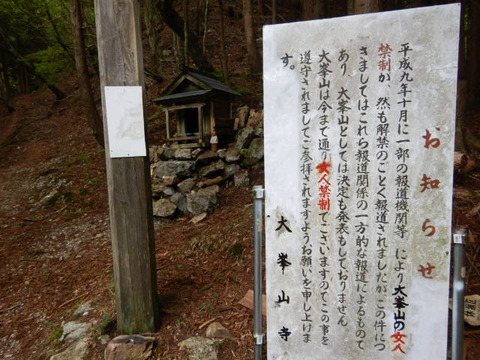 お知らせ
平成九年十月に一部の報道機関等により大峯山の女人
禁制が、然も解禁のごとく報道されましたがこの件につ
きましてはこれら報道関係の一方的な報道によるもので
あり、大峯山としては決定も発表もしておりません
大峯山は今まで通り女人禁制でございますのでこの事を
遵守されましてご参拝されますようお願いを申し上げま
す。
大峯山寺